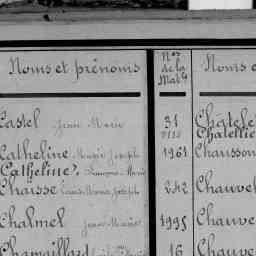 Noms et prénoms Nos de la Mat le Noms e
Castel Jean Marie 31 Chatele
Chatellie
Catheline Marie Joseph 1961 Chausson
Catheline, Marie
Chaisse Louis Marie Joseph 242 Chauve
Chalmel Jean Marie 1995 Chauve
Chamaillard 16 Chauve